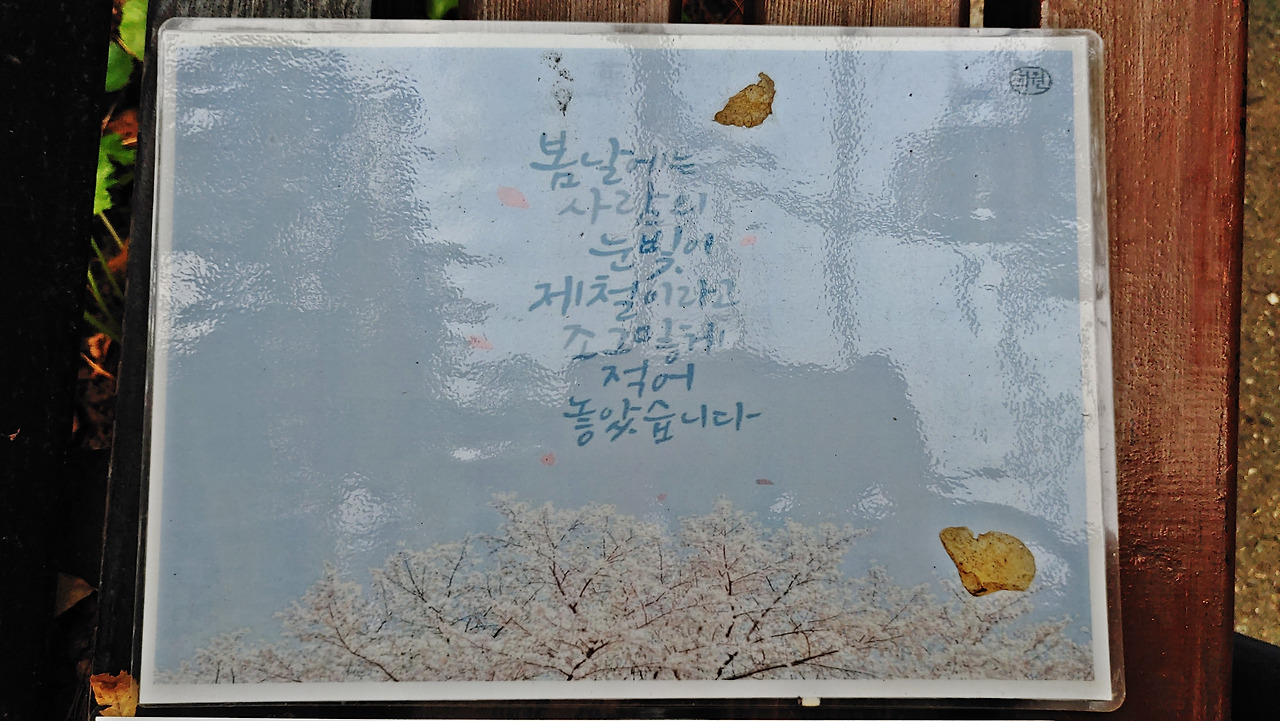 봄날에는
사람의
눈빛이
제철이라고
조그맣게
적어
놓았습니다